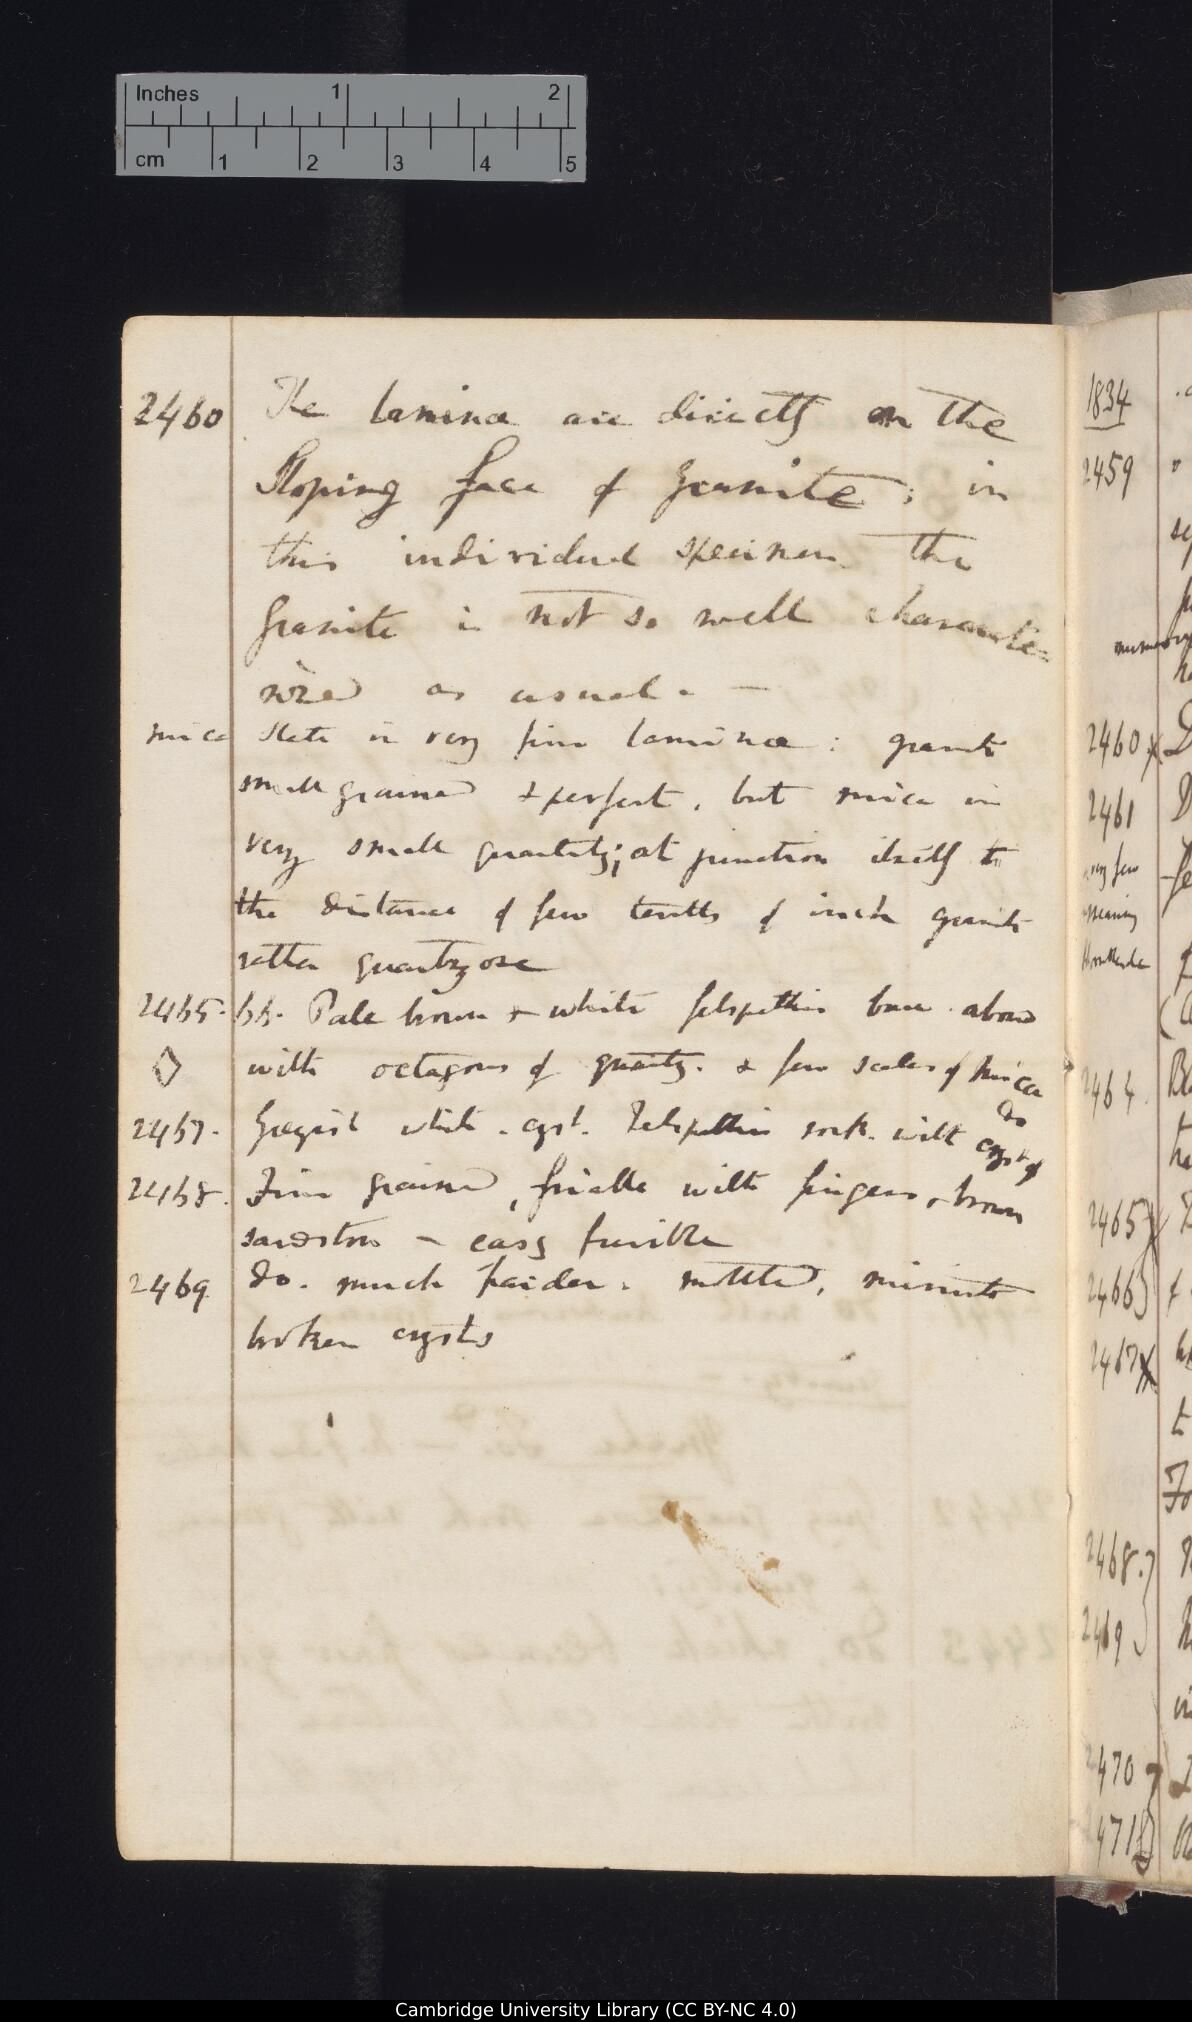 Inches 1 2
cm 1 2 3 4 5
2460 The laminæ are directly on the
sloping face of Granite; in
this individual specimen the
granite is not so well character-
rized as usual. —
mica slate in very fine laminæ: granite
small grained & perfect, but mica in
very small quantity; at junction itself to
the distance of few tenths of inch granite
rather quartzose
2465. 66. Pale brown & white felspathic base abound
◊ with octagons of quartz. & few scales of mica
2467. Greyish white. cryst. Felspathic rock. with do cryst of
2468. Fine grained, friable with fingers, brown
sandstone — easy fusible
2469 do. much harder. mottled, minute
broken crysts
1834
2459
2460
2461
very few
2464
2465
2466
2467
2468.
2469
2470
471
Cambridge University Library (CC BY-NC 4.0)